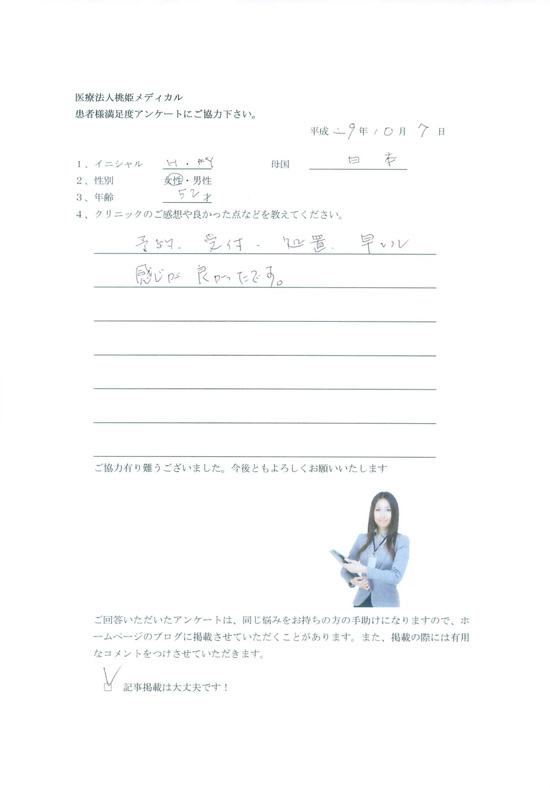 医療法人桃姫メディカル
患者様満足度アンケートにご協力下さい。
平成 29年 10月 7日
1、イニシャル H・M 母国 日本
2、性別 女性・男性
3、年齢 52才
4、クリニックのご感想や良かった点などを教えてください。
予約、受付、処置、早いし
感じが良かったです。
ご協力有り難うございました。今後ともよろしくお願いいたします
ご回答いただいたアンケートは、同じ悩みをお持ちの方の手助けになりますので、ホ
ームページのブログに掲載させていただくことがあります。また、掲載の際には有用
なコメントをつけさせていただきます。
記事掲載は大丈夫です！